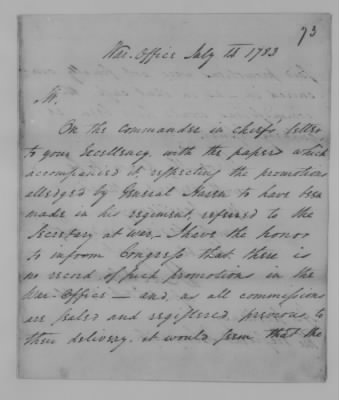 73
War-Office July 14 1783
Sir.
On the commander in chief's letter
to your Excellency, with the papers which
accompanied it, respecting the promotions
alledged by General Hazen to have been
made in his regiment, referred to the
Secretary at war_ I have the honor
to inform Congress that there is
no record of such promotions in the
War-Office — and, as all commissions
are sealed and registered, previous to
their delivery, it would seem that the